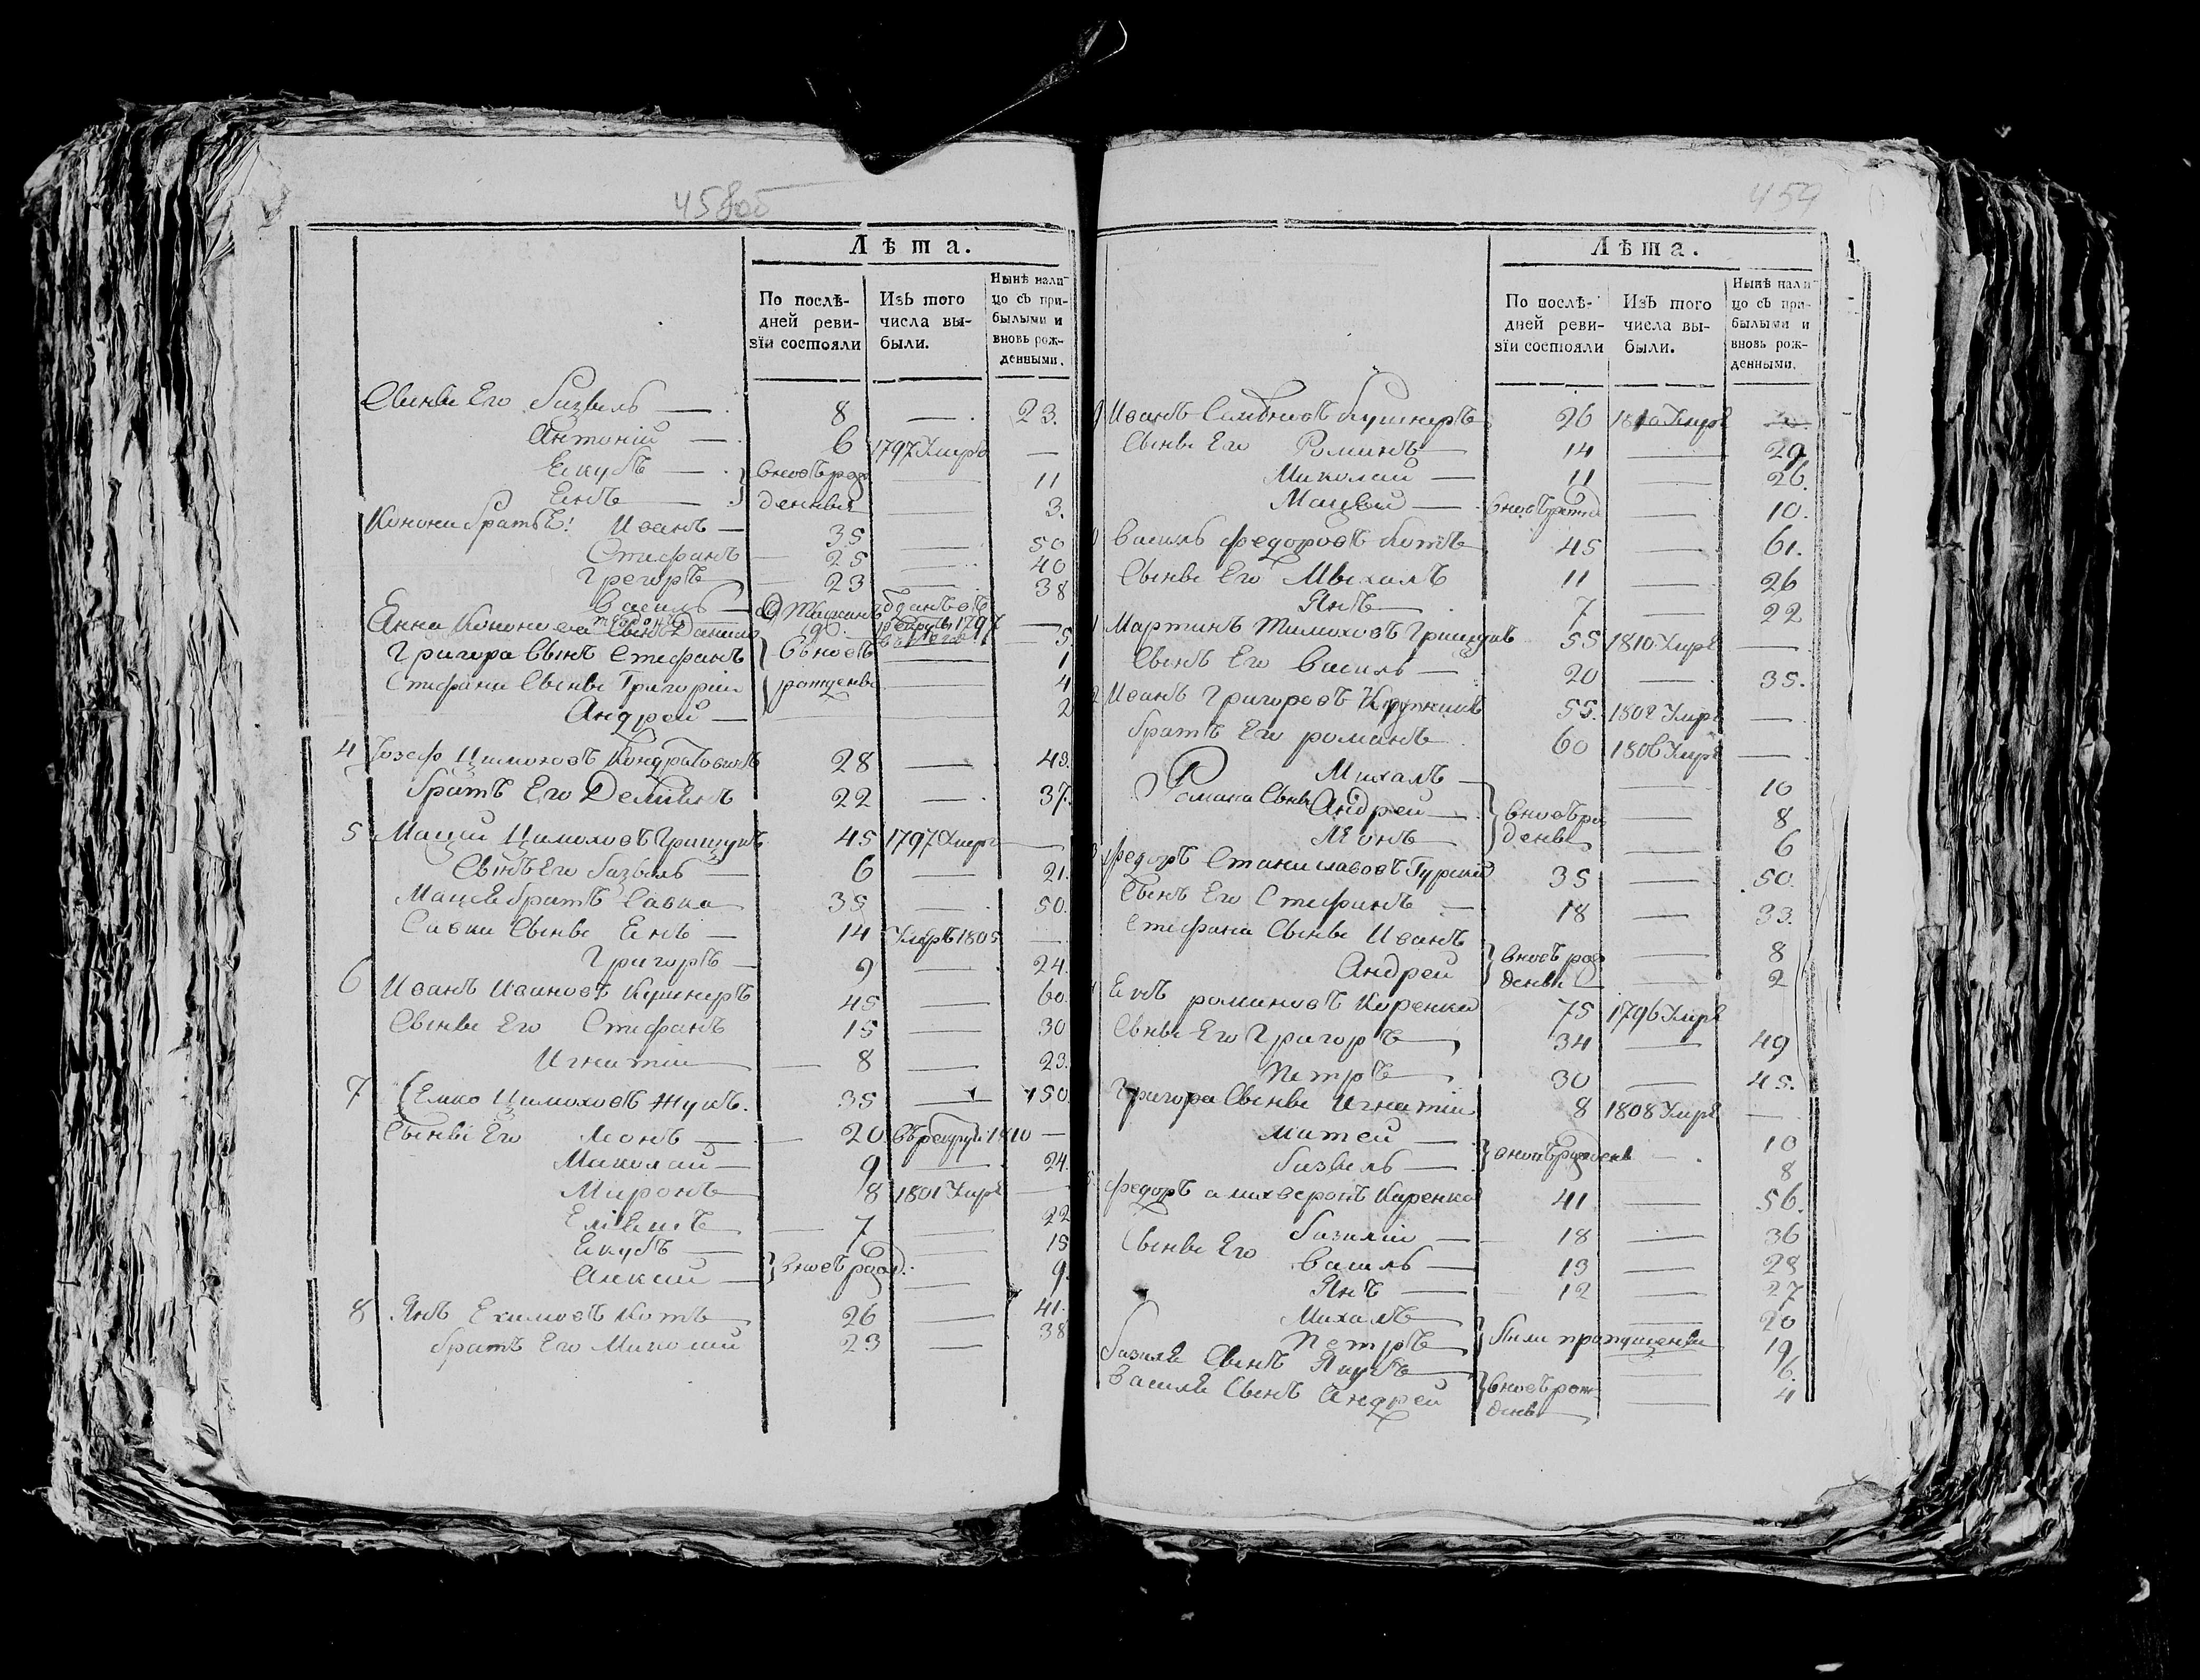 458об
Лѣта.
По послѣ-
дней реви-
зїи состояли
Изъ того
числа вы-
были.
Нынѣ нали-
цо съ при-
былыми и
вновь рож-
денными.
Сынве Его Базыль — 8 — 23.
Антоній — 6 1797 Умръ —
Екубъ — вновъ рож 11
Енъ — денныя 3.
Конона братъѣ: Иванъ — 35 — 50
Стефанъ — 25 — 40
Грегоръ — 23 — 38
Василь —
Григора Сынъ Стефанъ вновъ — 1
Стефана Сынве Григорій рожденые — 4
Андрей — 2
4 Іозеф Цимоховъ Кондратовичъ 28 — 43.
братъ Его Демьянъ 22 — 37.
5 Мацей Цимоховъ Грищукъ 45 1797 Умръ —
Сынъ Его Базыль — 6 — 21.
Мацея братъ Савка 35 — 50.
Савки Сынве Енъ — 14 Умръ 1805 —
Григоръ — 9 — 24.
6 Иванъ Ивановъ Кушнеръ 45 — 60.
Сынве Его Стефанъ 15 — 30
Игнатій — 8 — 23.
7 Емко Цимоховъ Жукъ. 35 — 50.
Сынве Его Леонъ — 20 въ рекруты 1810 —
Миколай — 9 — 24.
Миронъ 8 1801 Умръ —
7 — 22
Екубъ — вновъ рожд. 15
Алексей — 9.
8 Янъ Ехимовъ Котъ 26 — 41.
братъ Его Миколай 23 — 38
459
Лѣта.
По послѣ-
дней реви-
зїи состояли
Изъ того
числа вы-
были.
Нынѣ нали-
цо съ при-
былыми и
вновь рож-
денными.
9 Иванъ Кушнеръ 26 1810 Умръ
Сынве Его Романъ 14 — 29
Миколай — 11 — 26.
Мацей — вновъ рожд — 10.
Василь Федоровъ Котъ 45 — 61.
Сынве Его Михалъ 11 — 26
Янъ — 7 — 22
Мартинъ Тимоховъ Грищукъ 55 1810 Умръ —
Сынъ Его Василь — 20 — 35.
Иванъ Григоровъ 55. 1802 Умръ —
братъ Его романъ 60 1806 Умръ —
Михалъ — 10
Романа Сынве Андрей — вновъ ро — 8
Леонъ денные — 6
Федоръ Станиславовъ Гурский 35 — 50.
Сынъ Его Стефанъ — 18 — 33.
Стефана Сынве Иванъ вновъ рож — 8
Андрей денные — 2
Енъ романовъ Коренка 75 1796 Умръ
Сынве Его Григоръ 34 — 49
Петръ 30 — 45.
Григора Сынве Игнатій 8 1808 Умръ —
Матей — вновъ рождены — 10
Базыль — 8
Федоръ Коренка 41 — 56.
Сынве Его Базилій — 18 — 36
Василь — 13 — 28
Янъ — 12 — 27
Михалъ — 20
Петръ были пропущены 19
Базиля Сынъ Якубъ — 6.
Василя Сынъ Андрей вновъ рож — 4
дены